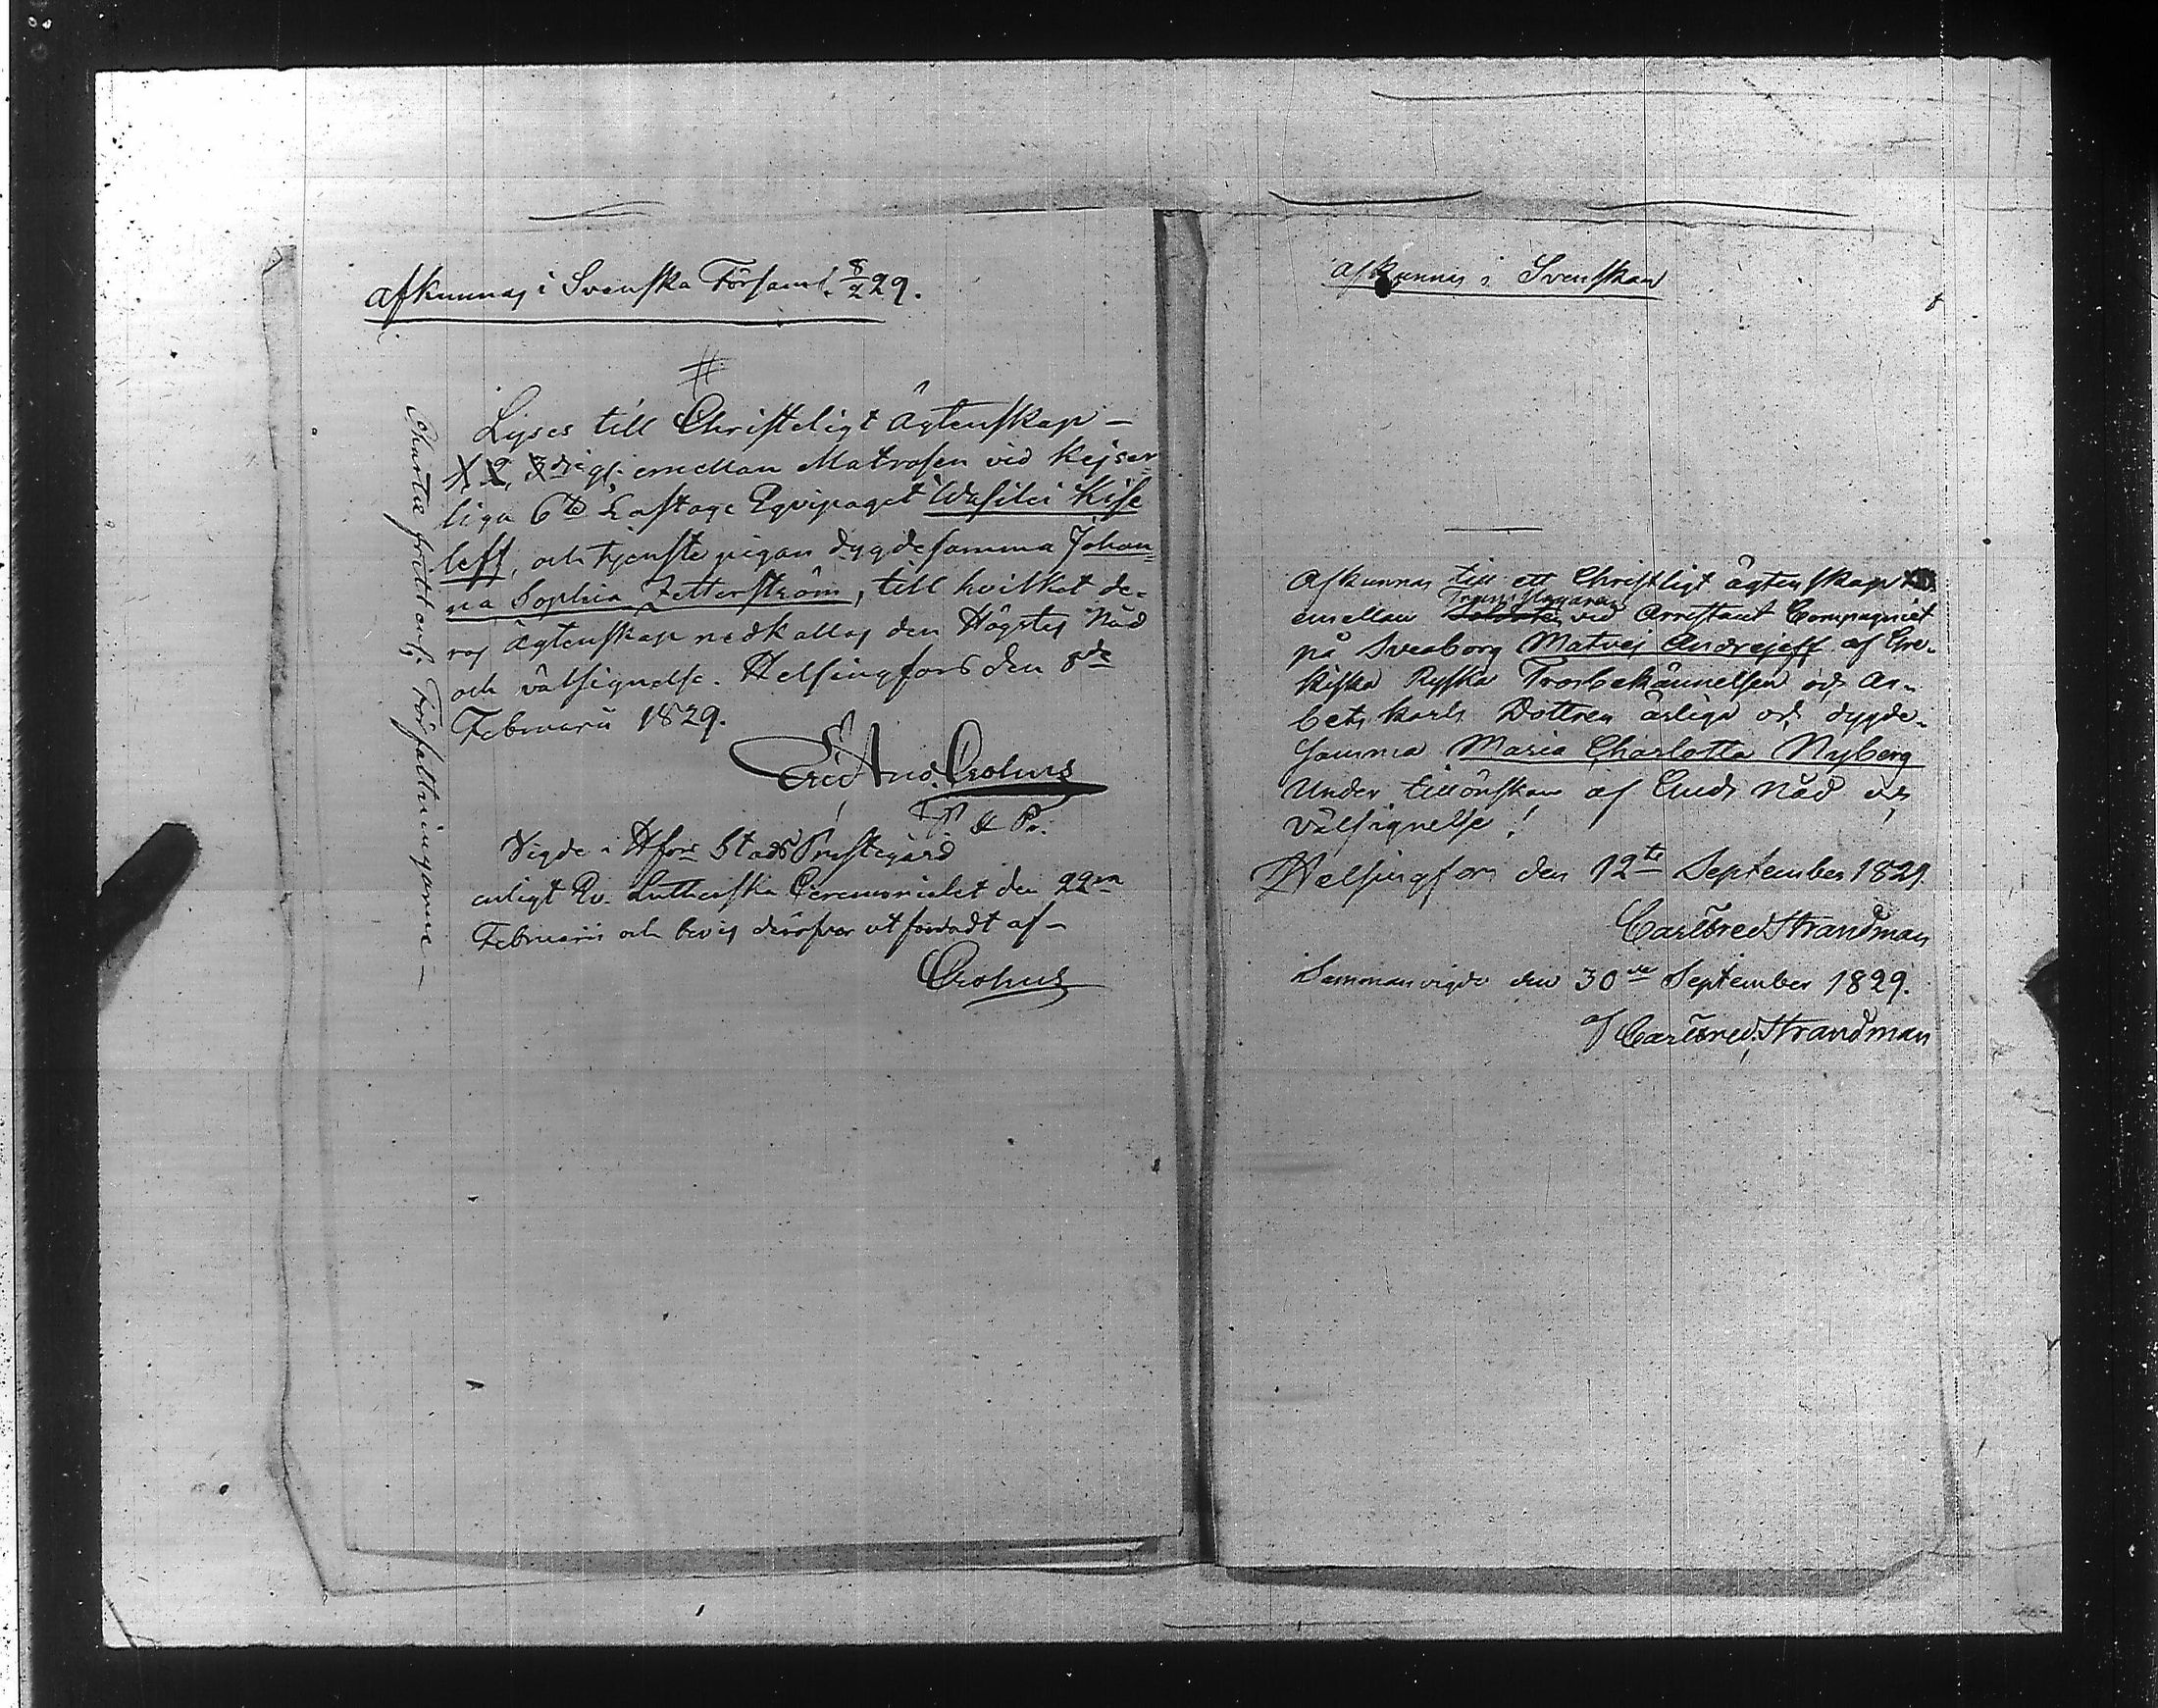 Afkunnas i Svenska Församl. 8/2 29.
#
Lyses till Christeligt Ägtenskap –
1, 2, 3dje g. emellan Matrosen vid Kejser-
liga 6te Lastage Eqvipaget Wasilei Kise
leff, och tjenstepigan dygdesamma Johan-
na Sophia Zetterström, till hvilket de-
ras Ägtenskap nedkallas den Högstes Nåd
och välsignelse. Helsingfors den 8de
Februarii 1829.
Eric And. Crohns
Vigde i Hfors Stads Prestegård
enligt Ev. Lutherska Ceremonielet den 22en
Februarii och bevis däröfver utfärdadt af –
Crohns
Charta fritt enl. Författningarne –
Afkunnas i Svenskan
Afkunnas till ett Christligt ägtenskap
emellan Trumslagaren vid Arrestant Compagniet
på Sveaborg Matvej Andrejeff af Gre-
kiska Ryska Trosbekännelsen och Ar-
bets karls Dottren ärliga och dygde-
samma Maria Charlotta Nyberg
Under tillönskan af Guds Nåd och
Välsignelse!
Helsingfors den 12te September 1829.
Carl Fred. Strandman
Sammanvigde den 30de September 1829.
af Carl Fred. Strandman